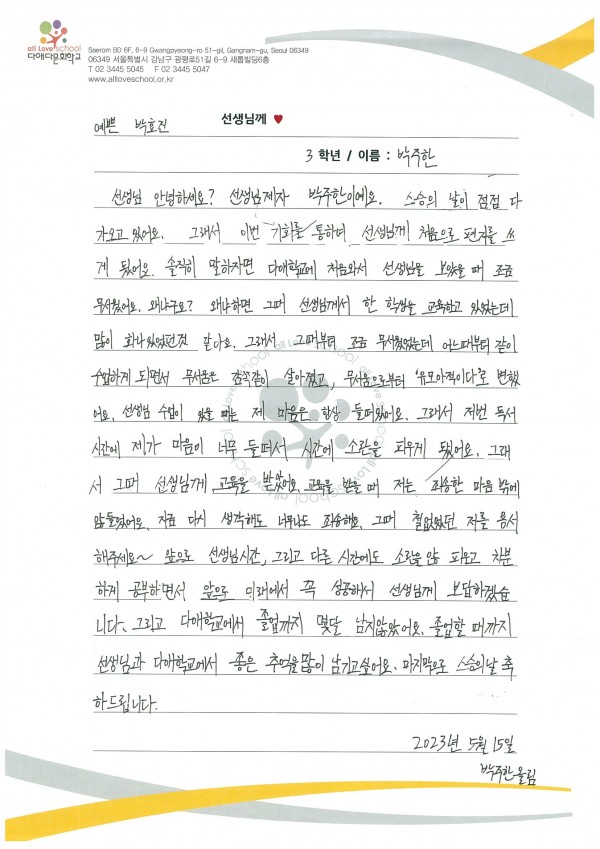 all Love school
다애다문화학교
Saerom BD 6F, 6-9 Gwangpyeong-ro 51-gil, Gangnam-gu, Seoul 06349
06349 서울특별시 강남구 광평로51길 6-9 새롬빌딩6층
T 02 3445 5045 F 02 3445 5047
www.alloveschool.or.kr
예쁜 박효진 선생님께 ♥
3 학년 / 이름 : 박주한
선생님 안녕하세요? 선생님제자 박주한이예요. 스승의 날이 점점 다
가오고 있어요. 그래서 이번 기회를 통하여 선생님께 처음으로 편지를 쓰
게 됐어요. 솔직히 말하자면 다애학교에 처음와서 선생님을 보았을 때 조금
무서웠어요. 왜냐구요? 왜냐하면 그때 선생님께서 한 학생을 교육하고 있었는데
많이 화나있었던것 같아요. 그래서 그때부터 조금 무서웠었는데 어느때부터 같이
수업하게 되면서 무서움은 감쪽같이 살아졌고, 무서움으로부터 '유모아적이다'로 변했
어요. 선생님 수업이 있을 때는 제 마음은 항상 들떠있어요. 그래서 저번 독서
시간에 제가 마음이 너무 들떠서 시간에 소란을 피우게 됐어요. 그래
서 그때 선생님께 교육을 받았어요. 교육을 받을 때 저는 죄송한 마음 밖에
않들었어요. 지금 다시 생각해도 너무나도 죄송해요. 그때 철없었던 저를 용서
해주세요~ 앞으로 선생님시간, 그리고 다른 시간에도 소란을 않 피우고 차분
하게 공부하면서 앞으로 미래에서 꼭 성공해서 선생님께 보답하겠습
니다. 그리고 다애학교에서 졸업까지 몇달 남지않았어요. 졸업할 때까지
선생님과 다애학교에서 좋은 추억을 많이 남기고싶어요. 마지막으로 스승의날 축
하드립니다.
2023년 5월 15일
박주한 올림